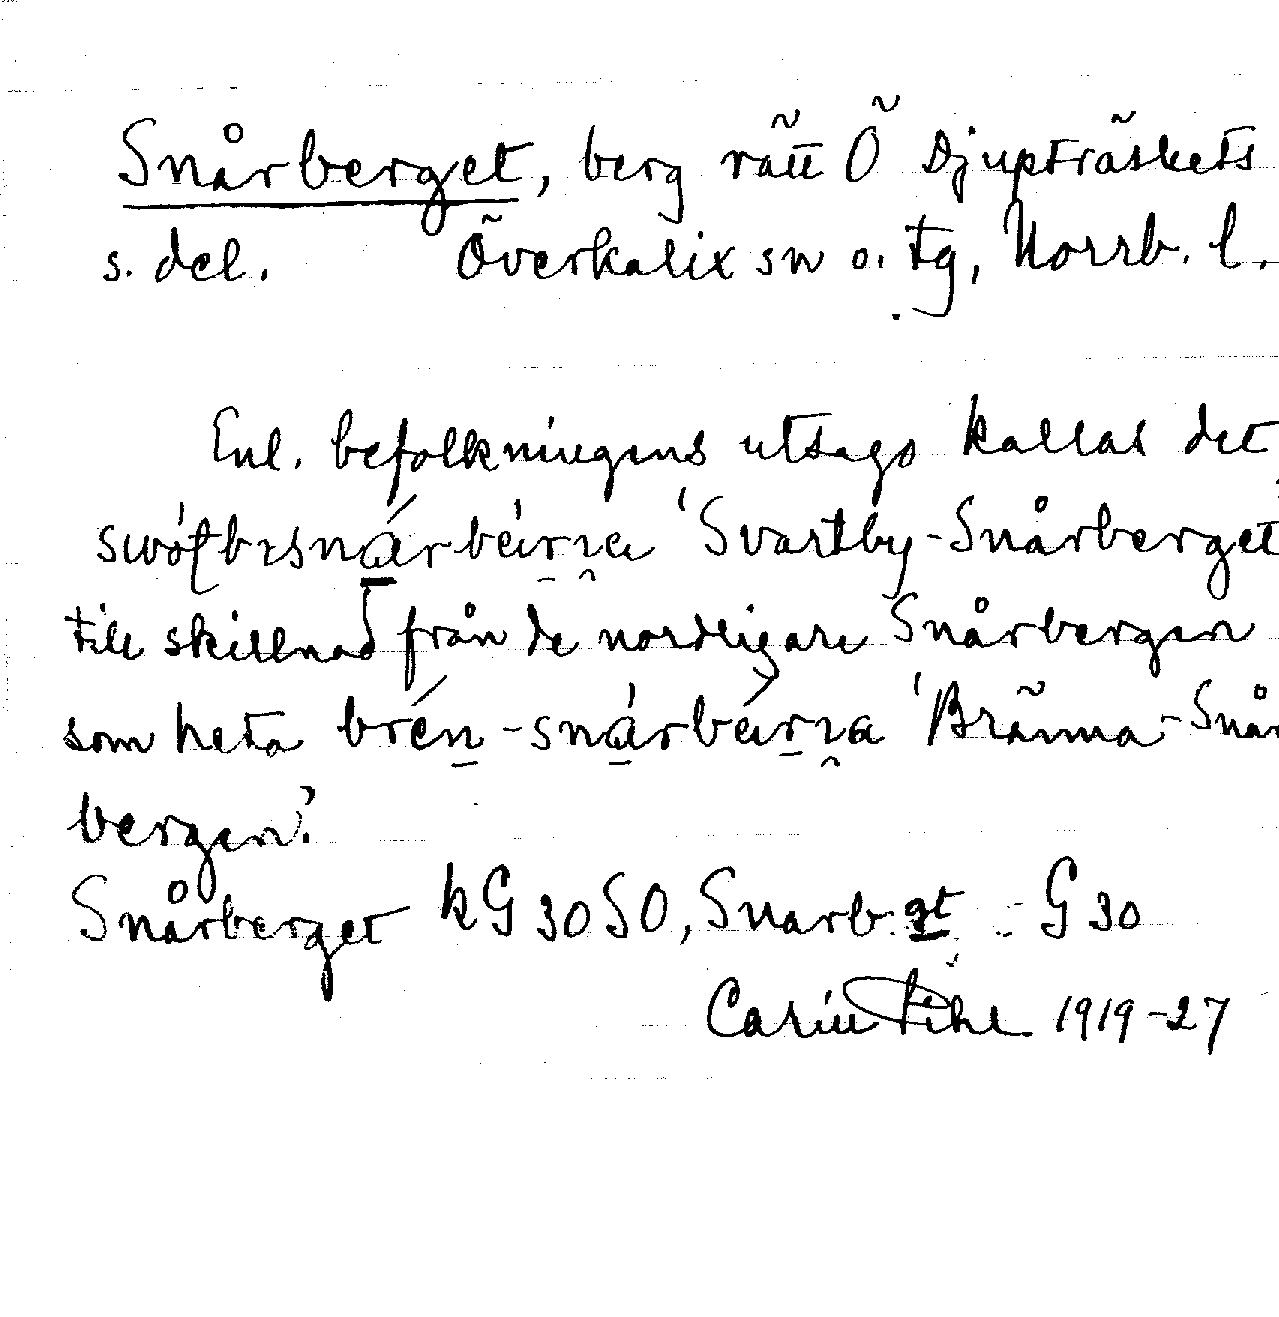 Snårberget, berg rätt Ö Djupträskets
s. del. Överkalix sn o. tg, Norrb. l.
Enl. befolkningens utsago kallas det
'Svartby-Snårberget
till skillnad från de nordligare Snårbergen
som heta brén-snárbéirɲa 'Bränna-Snår
bergen'.
Snårberget kG 30 SO, Snarb:gt G 30
Carin Pihl 1919-27